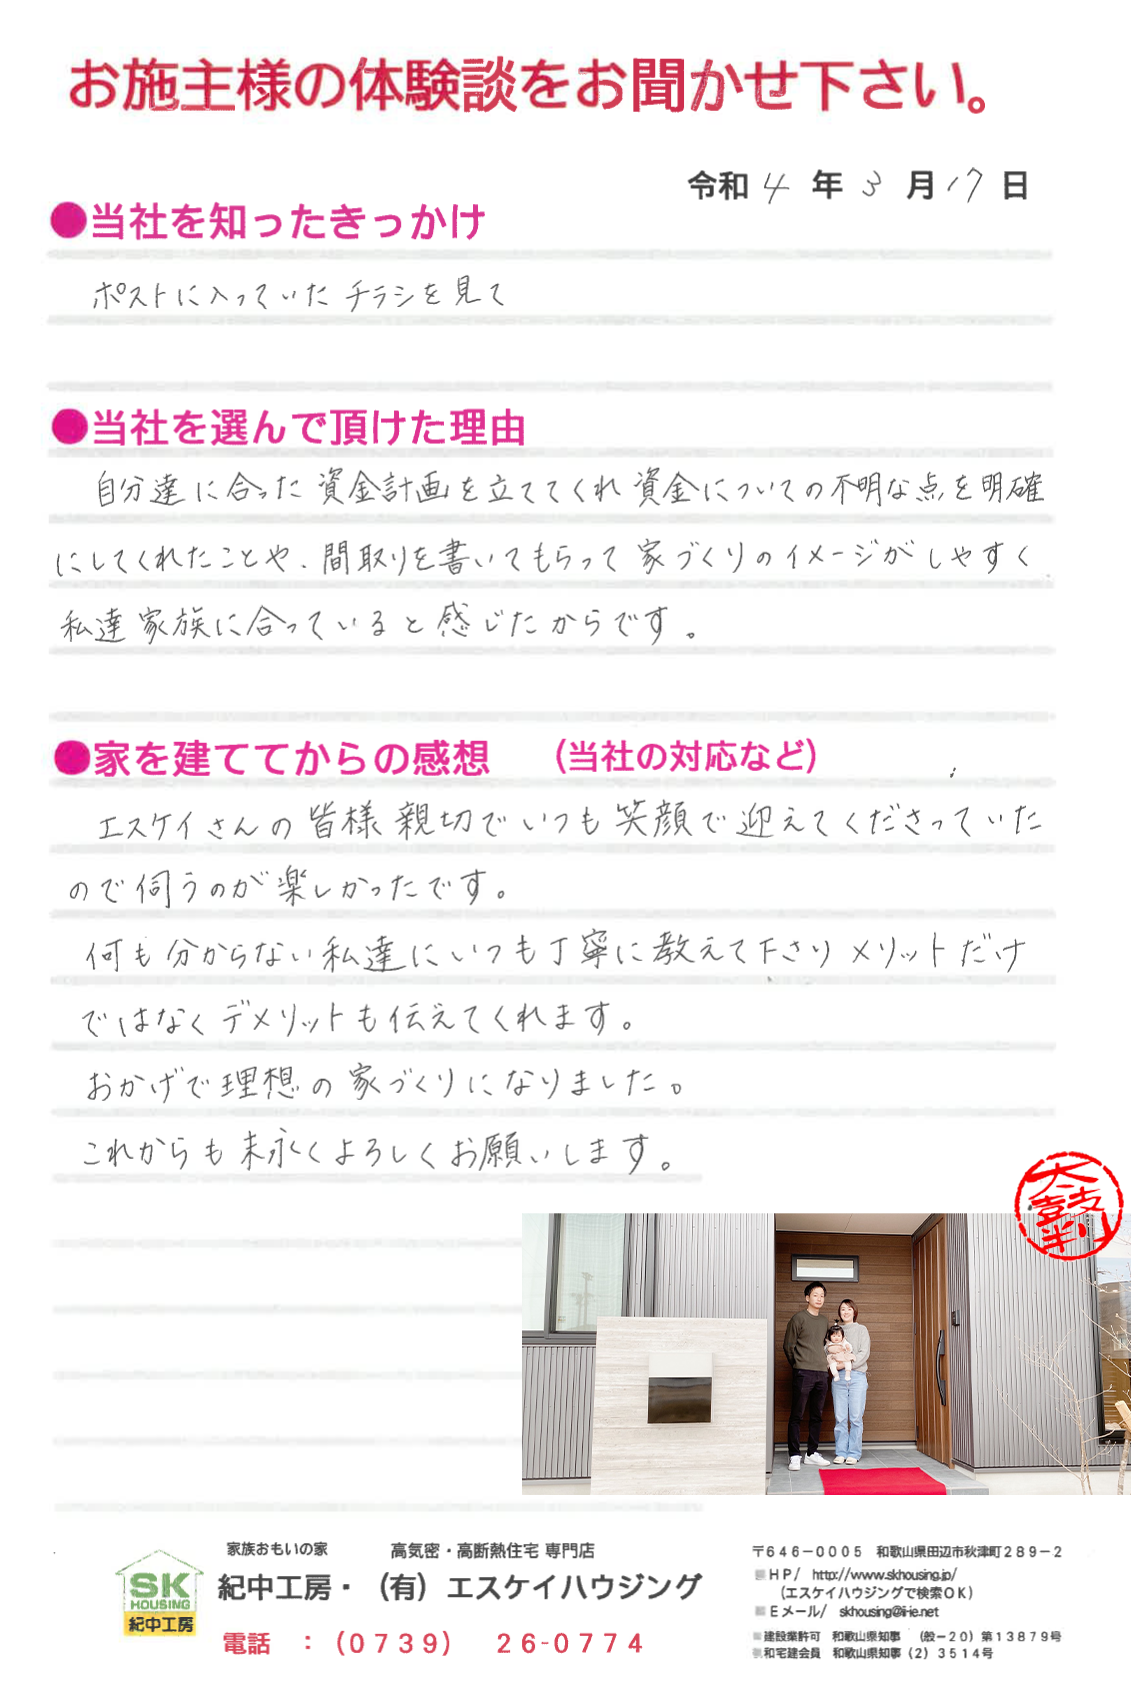 お施主様の体験談をお聞かせ下さい。
令和4年3月17日
●当社を知ったきっかけ
ポストに入っていたチラシを見て
●当社を選んで頂けた理由
自分達に合った資金計画を立ててくれ資金についての不明な点を明確
にしてくれたことや、間取りを書いてもらって家づくりのイメージがしやすく
私達家族に合っていると感じたからです。
●家を建ててからの感想 (当社の対応など)
エスケイさんの皆様親切でいつも笑顔で迎えてくださっていた
ので伺うのが楽しかったです。
何も分からない私達にいつも丁寧に教えて下さりメリットだけ
ではなくデメリットも伝えてくれます。
おかげで理想の家づくりになりました。
これからも末永くよろしくお願いします。
太鼓判
SK
HOUSING
紀中工房
家族おもいの家 高気密・高断熱住宅 専門店
紀中工房・(有)エスケイハウジング
電話 :(0739) 26-0774
〒646-0005 和歌山県田辺市秋津町289-2
HP/ http://www.skhousing.jp/
(エスケイハウジングで検索OK)
Eメール/ skhousing@i-ie.net
建設業許可 和歌山県知事 (般-20)第13879号
和宅建会員 和歌山県知事(2)3514号